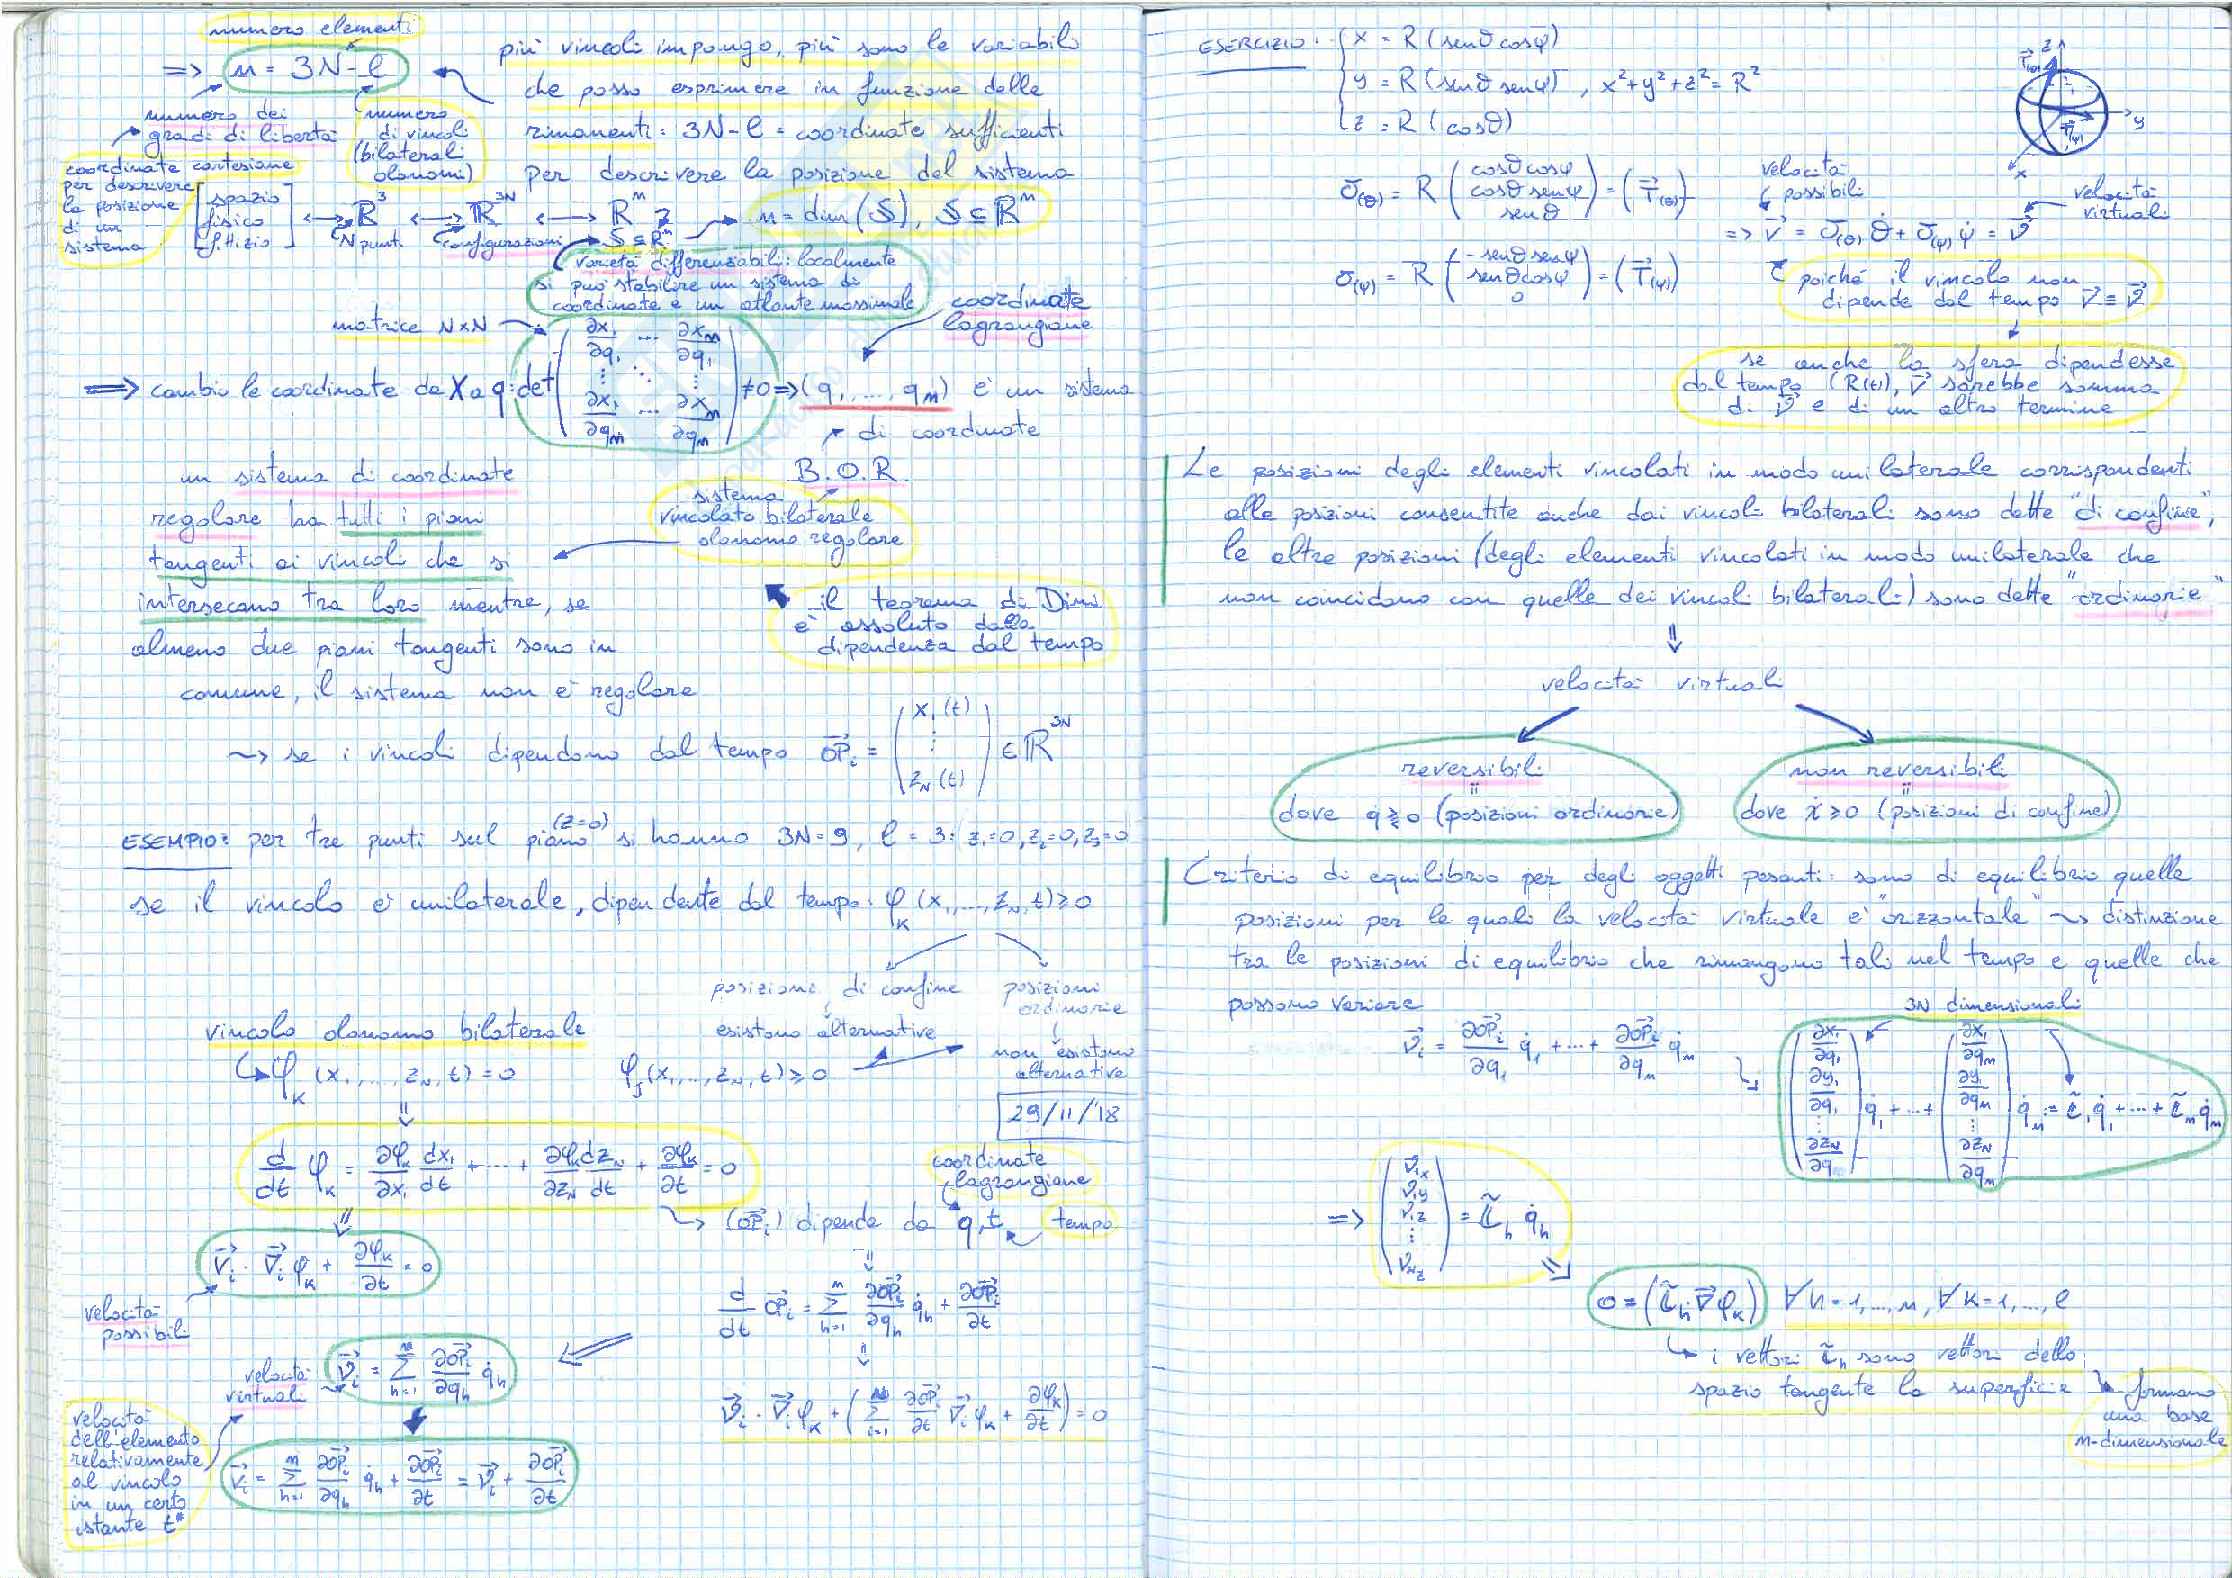 numero elementi
=> n = 3N - l
numero dei gradi di libertà
numero di vincoli (bilaterali olonomi)
più vincoli impongo, più sono le variabili
che posso esprimere in funzione delle
rimanenti: 3N-l = coordinate sufficienti
per descrivere la posizione del sistema
coordinate cartesiane
per descrivere
la posizione
di un
sistema
[spazio fisico fittizio] <-> R³ <-> R^3N <-> R^m
N punti
configurazioni
S ⊆ R^m
n = dim(S), S ⊆ R^m
varietà differenziabili: localmente
si può stabilire un sistema di
coordinate e un atlante massimale
matrice N×N
coordinate
lagrangiane
=> cambio le coordinate da X a q: det (∂x₁/∂q₁ ... ∂x_m/∂q₁ ⋮ ⋱ ⋮ ∂x₁/∂q_m ... ∂x_m/∂q_m) ≠ 0 => (q₁, ..., q_m) è un sistema
di coordinate
B.O.R.
un sistema di coordinate
regolare ha tutti i piani
tangenti ai vincoli che si
intersecano tra loro mentre, se
almeno due piani tangenti sono in
comune, il sistema non è regolare
sistema
vincolato bilaterale
olonomo regolare
il teorema di Dini
è assoluto dalla
dipendenza dal tempo
~> se i vincoli dipendono dal tempo OP⃗_i = (x₁(t) ⋮ z_N(t)) ∈ R^3N
ESEMPIO: per tre punti sul piano (z=0) si hanno 3N=9, l=3: z₁=0, z₂=0, z₃=0
se il vincolo è unilaterale, dipendente dal tempo: φ_k(x₁,...,z_N,t) ≥ 0
posizioni di confine
esistono alternative
posizioni
ordinarie
non esistono
alternative
vincolo olonomo bilaterale
φ_k(x₁,...,z_N,t) = 0
φ_j(x₁,...,z_N,t) ≥ 0
29/11/'18
d/dt φ_k = ∂φ_k/∂x₁ dx₁/dt + ... + ∂φ_k/∂z_N dz_N/dt + ∂φ_k/∂t = 0
coordinate
lagrangiane
~> (OP⃗_i) dipende da q, t
tempo
v⃗_i · ∇⃗_i φ_k + ∂φ_k/∂t = 0
velocità
possibili
d/dt OP⃗_i = Σ_{h=1}^{n} ∂OP⃗_i/∂q_h q̇_h + ∂OP⃗_i/∂t
velocità
virtuali
ν⃗_i = Σ_{h=1}^{n} ∂OP⃗_i/∂q_h q̇_h
ν⃗_i · ∇⃗_i φ_k + (Σ_{i=1}^{N} ∂OP⃗_i/∂t ∇⃗_i φ_k + ∂φ_k/∂t) = 0
velocità
dell'elemento
relativamente
al vincolo
in un certo
istante t*
v⃗_i = Σ_{h=1}^{n} ∂OP⃗_i/∂q_h q̇_h + ∂OP⃗_i/∂t = ν⃗_i + ∂OP⃗_i/∂t
ESERCIZIO: x = R(senθ cosφ)
y = R(senθ senφ), x²+y²+z² = R²
z = R(cosθ)
z
τ⃗(θ)
y
τ⃗(φ)
x
σ(θ) = R (cosθcosφ cosθsenφ senθ) = (τ⃗(θ))
σ(φ) = R (-senθsenφ senθcosφ 0) = (τ⃗(φ))
velocità
possibili
velocità
virtuali
=> v⃗ = σ(θ) θ̇ + σ(φ) φ̇ = ν⃗
poiché il vincolo non
dipende dal tempo v⃗ ≡ ν⃗
se anche la sfera dipendesse
dal tempo (R(t)), v⃗ sarebbe somma
di ν⃗ e di un altro termine
Le posizioni degli elementi vincolati in modo unilaterale corrispondenti
alle posizioni consentite anche dai vincoli bilaterali sono dette "di confine",
le altre posizioni (degli elementi vincolati in modo unilaterale che
non coincidono con quelle dei vincoli bilaterali) sono dette "ordinarie"
velocità virtuali
reversibili
dove q̇ ≷ 0 (posizioni ordinarie)
non reversibili
dove ẋ ≥ 0 (posizioni di confine)
Criterio di equilibrio per degli oggetti pesanti: sono di equilibrio quelle
posizioni per le quali la velocità virtuale è "orizzontale" ~> distinzione
tra le posizioni di equilibrio che rimangono tali nel tempo e quelle che
possono variare
3N dimensionali
ν⃗_i = ∂OP⃗_i/∂q₁ q̇₁ + ... + ∂OP⃗_i/∂q_m q̇_m
(∂x₁/∂q₁ ∂y₁/∂q₁ ⋮ ∂z_N/∂q₁) q̇₁ + ... + (∂x₁/∂q_m ∂y₁/∂q_m ⋮ ∂z_N/∂q_m) q̇_m = τ̃₁ q̇₁ + ... + τ̃_m q̇_m
=> (ν₁x ν₁y ν₁z ⋮ ν_Nz) = τ̃_h q̇_h
0 = (τ̃_h · ∇⃗φ_k) ∀h=1,...,n, ∀k=1,...,l
i vettori τ̃_h sono vettori dello
spazio tangente la superficie
formano
una base
m-dimensionale